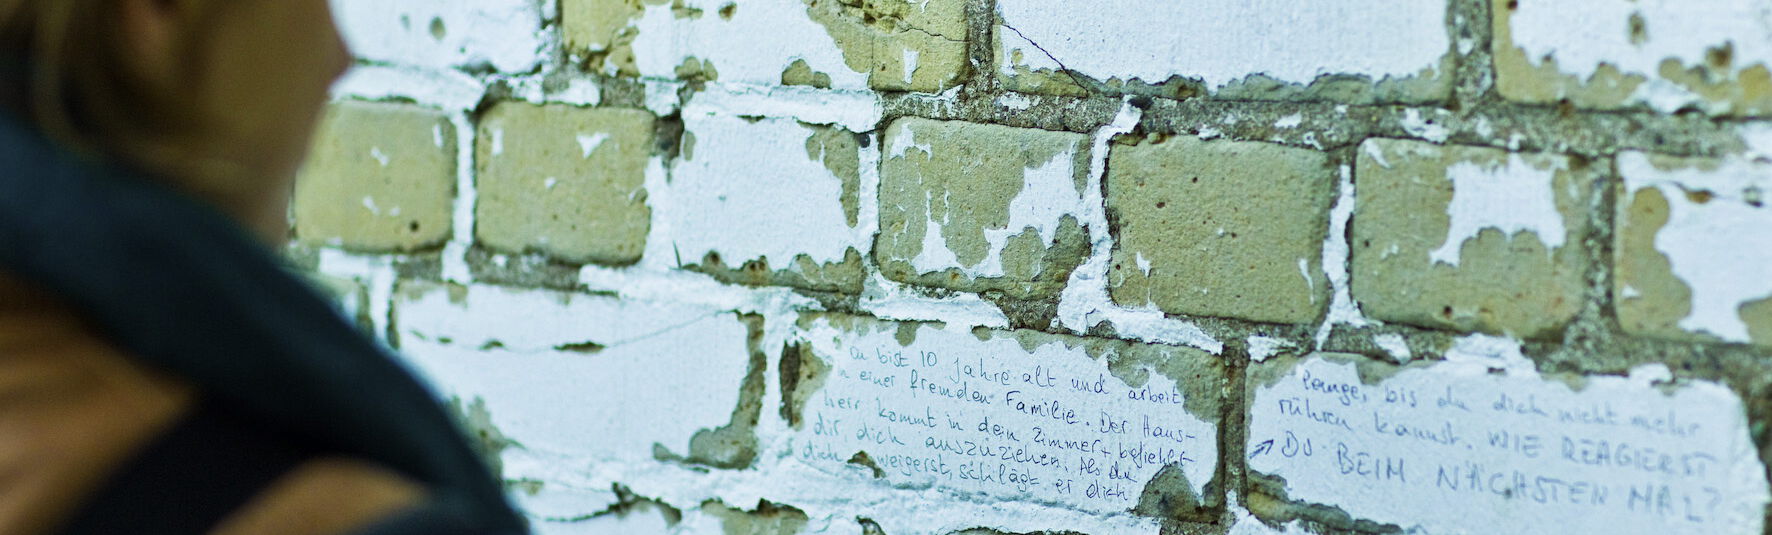 du bist 10 Jahre alt und arbeit
n einer fremden Familie. Der Haus-
herr kommt in dein Zimmer + befiehlt
dir, dich auszuziehen. Als du
dich weigerst, schlägt er dich
lange, bis du dich nicht mehr
rühren kannst. WIE REAGIERST
→ DU BEIM NÄCHSTEN MAL?